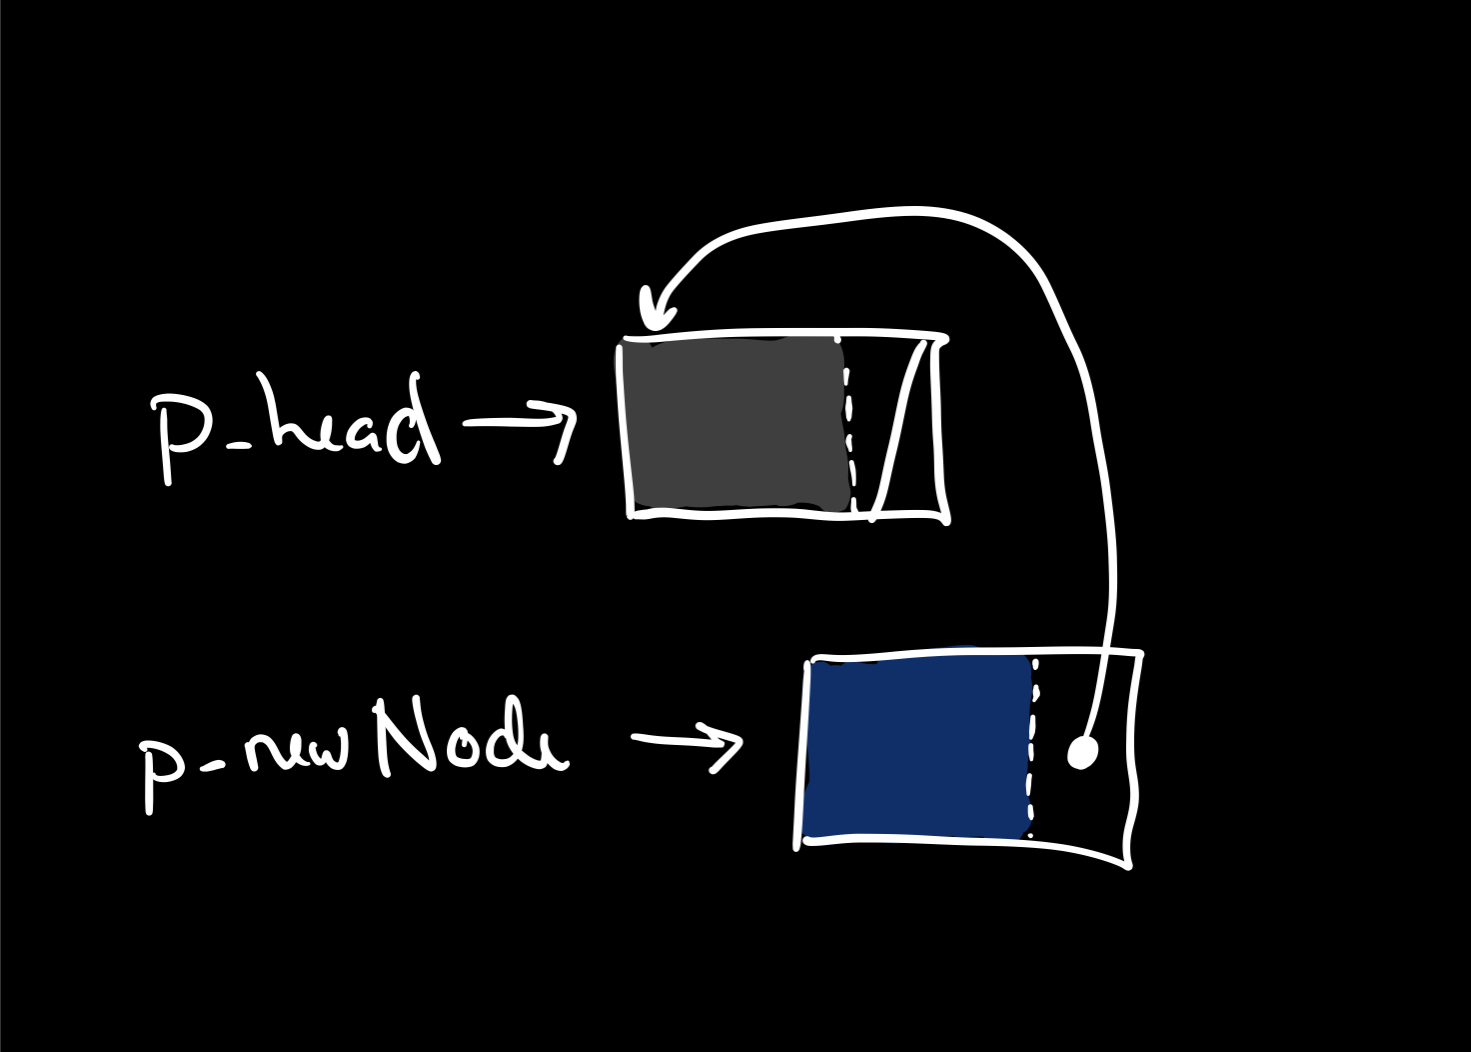 p-head
p-newNode